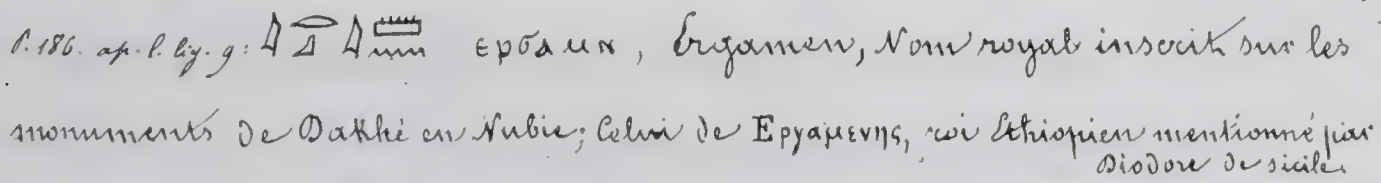 P. 186. ap. l. lig. 9: 𓇋𓂋𓈎𓇋𓏠𓈖 ⲉⲣϭⲁⲙⲛ, Ergamen, Nom royal inscrit sur les
monuments de Dakké en Nubie; Celui de Εργαμενης, roi Ethiopien mentionné par
Diodore de sicile.